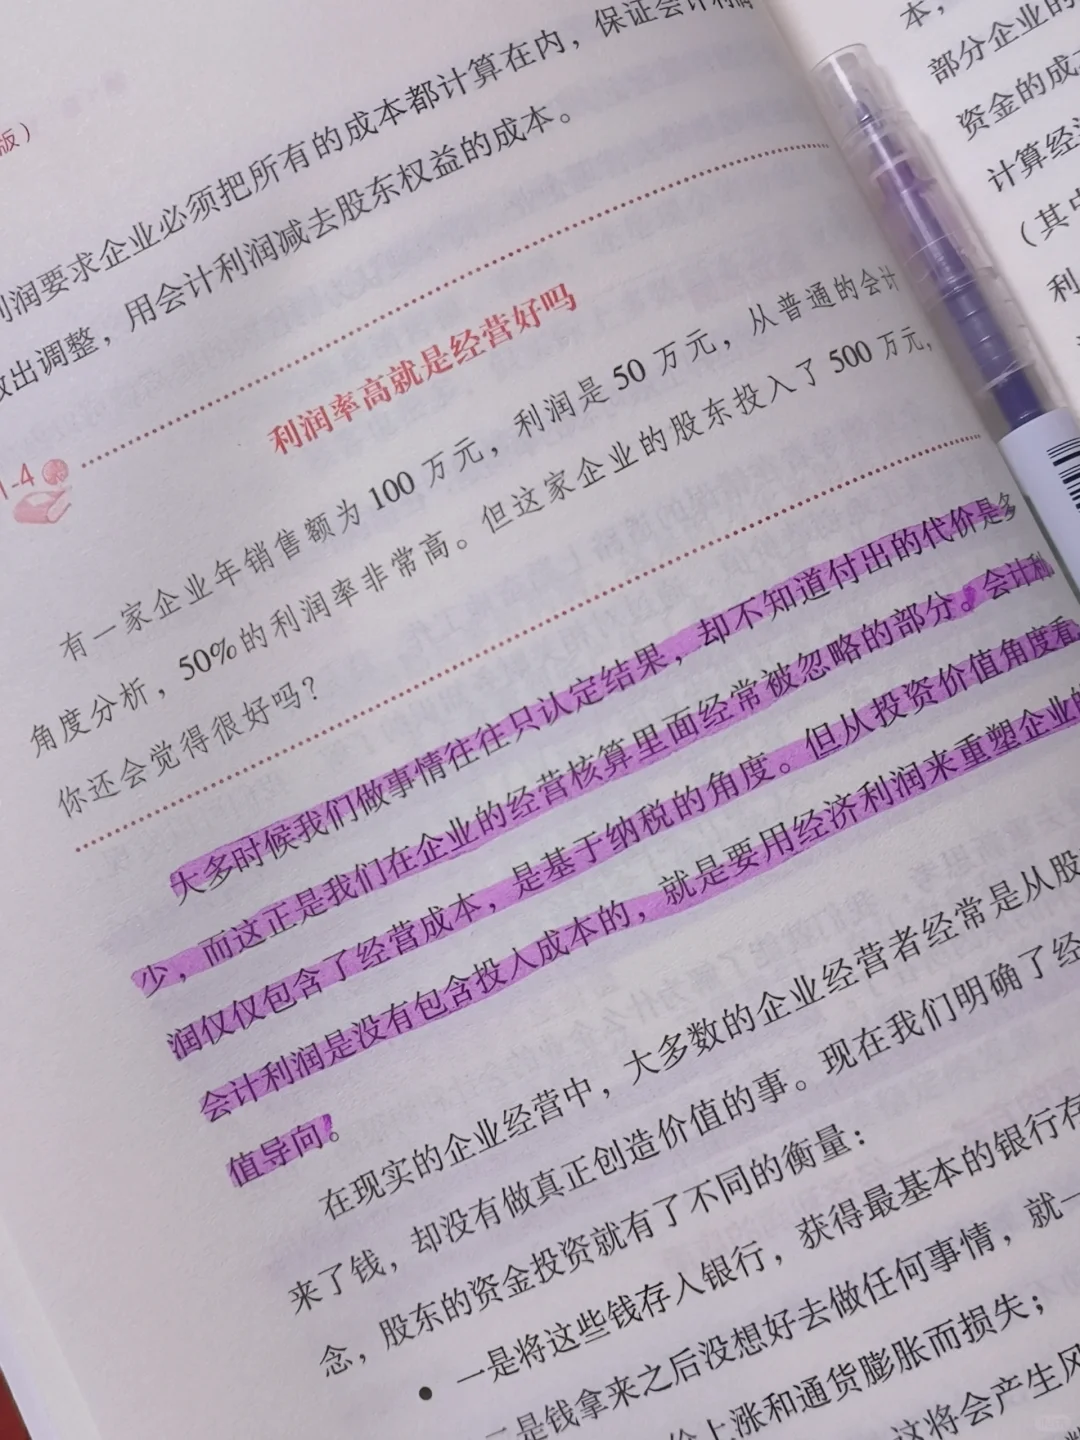 版）
利润要求企业必须把所有的成本都计算在内，保证会计利润
做出调整，用会计利润减去股东权益的成本。
1-4
利润率高就是经营好吗
有一家企业年销售额为100万元，利润是50万元，从普通的会计
角度分析，50%的利润率非常高。但这家企业的股东投入了500万元，
你还会觉得很好吗？
大多时候我们做事情往往只认定结果，却不知道付出的代价是多
少，而这正是我们在企业的经营核算里面经常被忽略的部分。会计利
润仅仅包含了经营成本，是基于纳税的角度。但从投资价值角度看
会计利润是没有包含投入成本的，就是要用经济利润来重塑企业的
值导向。
在现实的企业经营中，大多数的企业经营者经常是从股
来了钱，却没有做真正创造价值的事。现在我们明确了经
念，股东的资金投资就有了不同的衡量：
• 一是将这些钱存入银行，获得最基本的银行存
二是钱拿来之后没想好去做任何事情，就一
上涨和通货膨胀而损失；
这将会产生风
本，
部分企业的
资金的成
计算经
（其中
利